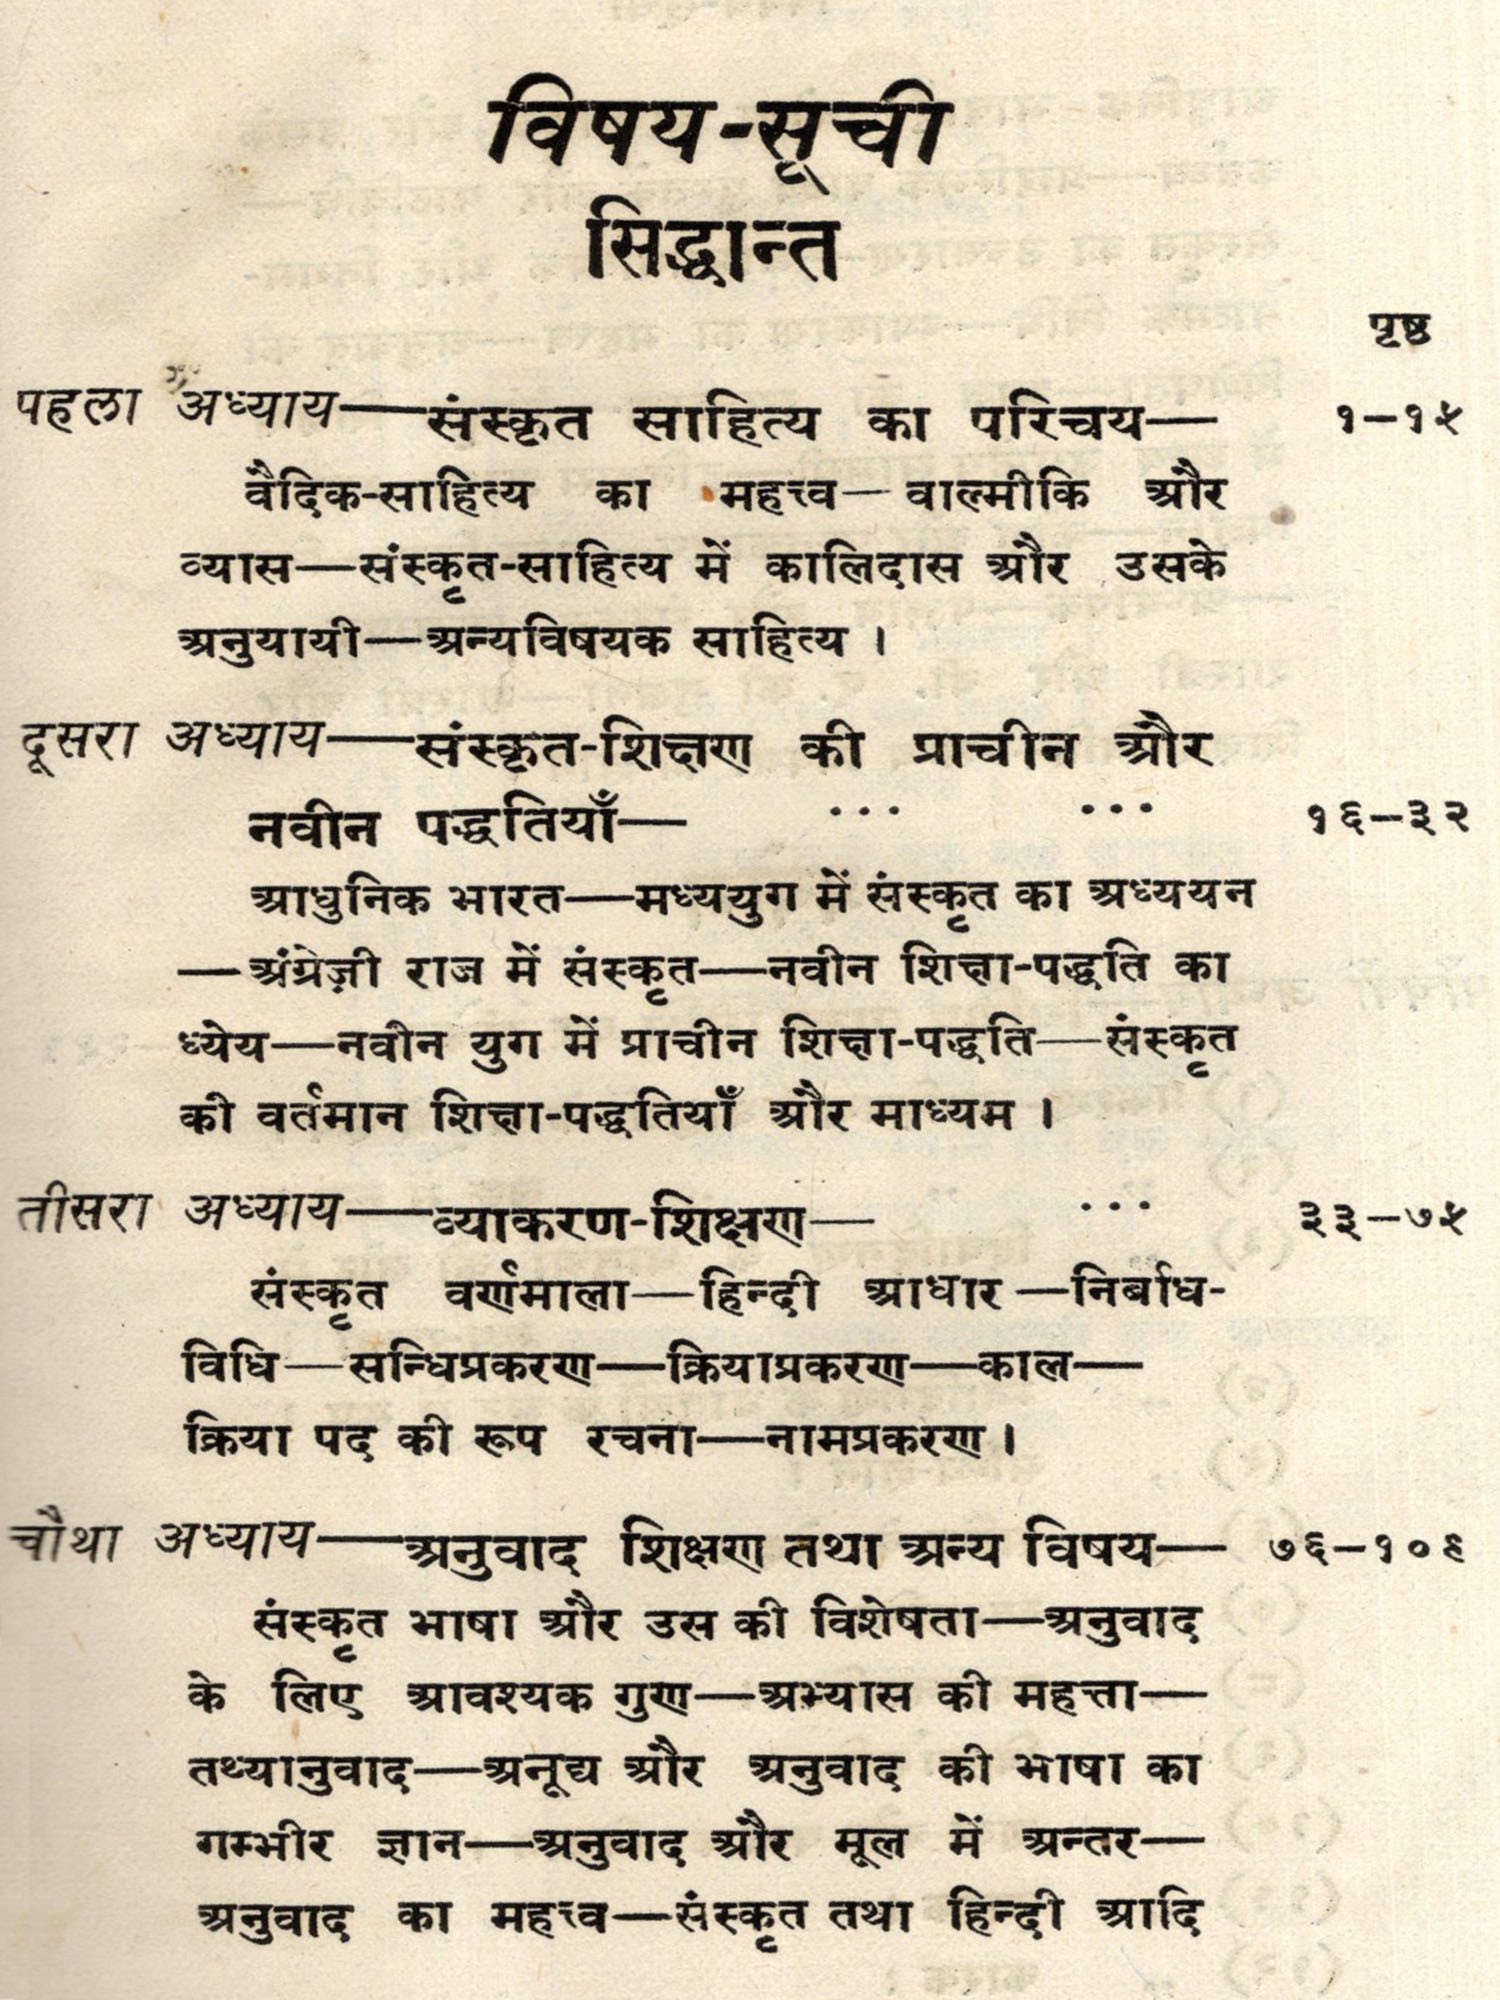 विषय-सूची
सिद्धान्त
पृष्ठ
पहला अध्याय—संस्कृत साहित्य का परिचय— १-१५
वैदिक-साहित्य का महत्त्व—वाल्मीकि और
व्यास—संस्कृत-साहित्य में कालिदास और उसके
अनुयायी—अन्यविषयक साहित्य ।
दूसरा अध्याय—संस्कृत-शिक्षण की प्राचीन और
नवीन पद्धतियाँ— ... ... १६-३२
आधुनिक भारत—मध्ययुग में संस्कृत का अध्ययन
—अंग्रेज़ी राज में संस्कृत—नवीन शिक्षा-पद्धति का
ध्येय—नवीन युग में प्राचीन शिक्षा-पद्धति—संस्कृत
की वर्तमान शिक्षा-पद्धतियाँ और माध्यम ।
तीसरा अध्याय—व्याकरण-शिक्षण— ... ३३-७५
संस्कृत वर्णमाला—हिन्दी आधार—निर्बाध-
विधि—सन्धिप्रकरण—क्रियाप्रकरण—काल—
क्रिया पद की रूप रचना—नामप्रकरण ।
चौथा अध्याय—अनुवाद शिक्षण तथा अन्य विषय— ७६-१०९
संस्कृत भाषा और उस की विशेषता—अनुवाद
के लिए आवश्यक गुण—अभ्यास की महत्ता—
तथ्यानुवाद—अनूद्य और अनुवाद की भाषा का
गम्भीर ज्ञान—अनुवाद और मूल में अन्तर—
अनुवाद का महत्त्व—संस्कृत तथा हिन्दी आदि